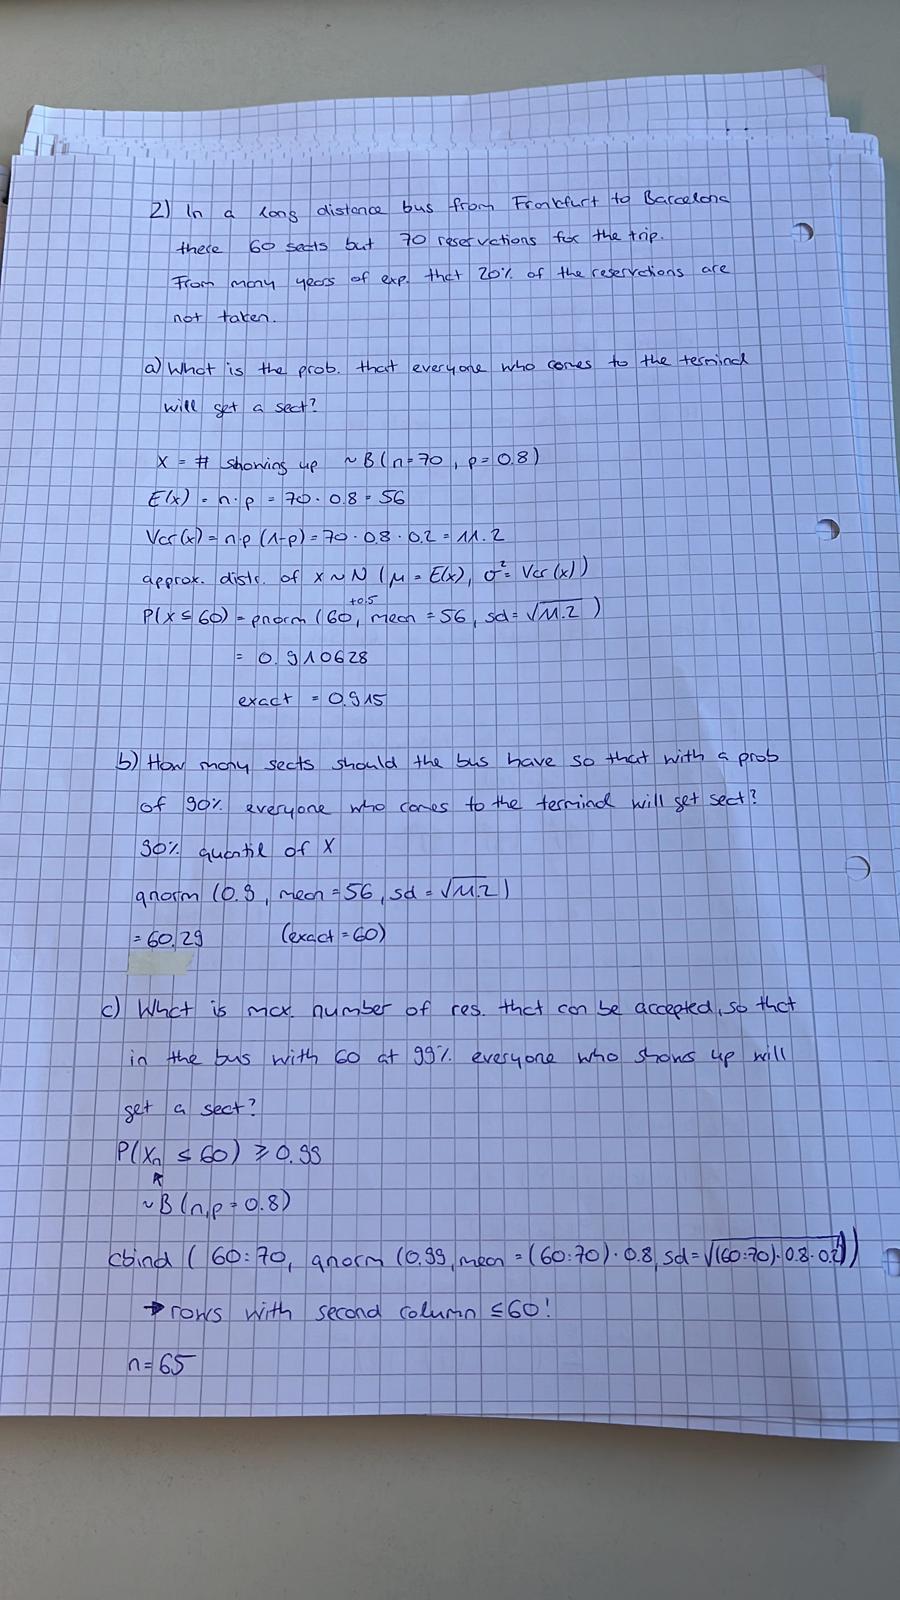 2) In a long distance bus from Frankfurt to Barcelona
there 60 seats but 70 reservations for the trip.
From many years of exp. that 20% of the reservations are
not taken.
a) What is the prob. that everyone who comes to the terminal
will get a seat?
X = # showing up ~ B(n=70, p=0.8)
E(x) = n·p = 70 · 0.8 = 56
Var(x) = n·p (1-p) = 70 · 0.8 · 0.2 = 11.2
approx. distr. of x ~ N (μ = E(x), σ² = Var(x))
+0.5
P(X ≤ 60) = pnorm (60, mean = 56, sd = √11.2)
= 0.910628
exact = 0.915
b) How many seats should the bus have so that with a prob
of 90% everyone who comes to the terminal will get seat?
90% quantil of X
qnorm (0.9, mean = 56, sd = √11.2)
= 60.29 (exact = 60)
c) What is max. number of res. that can be accepted, so that
in the bus with 60 at 99% everyone who shows up will
get a seat?
P(Xn ≤ 60) ≥ 0.99
~ B(n,p = 0.8)
cbind ( 60:70, qnorm (0.99, mean = (60:70) · 0.8, sd = √(60:70) · 0.8 · 0.2))
→ rows with second column ≤ 60!
n = 65